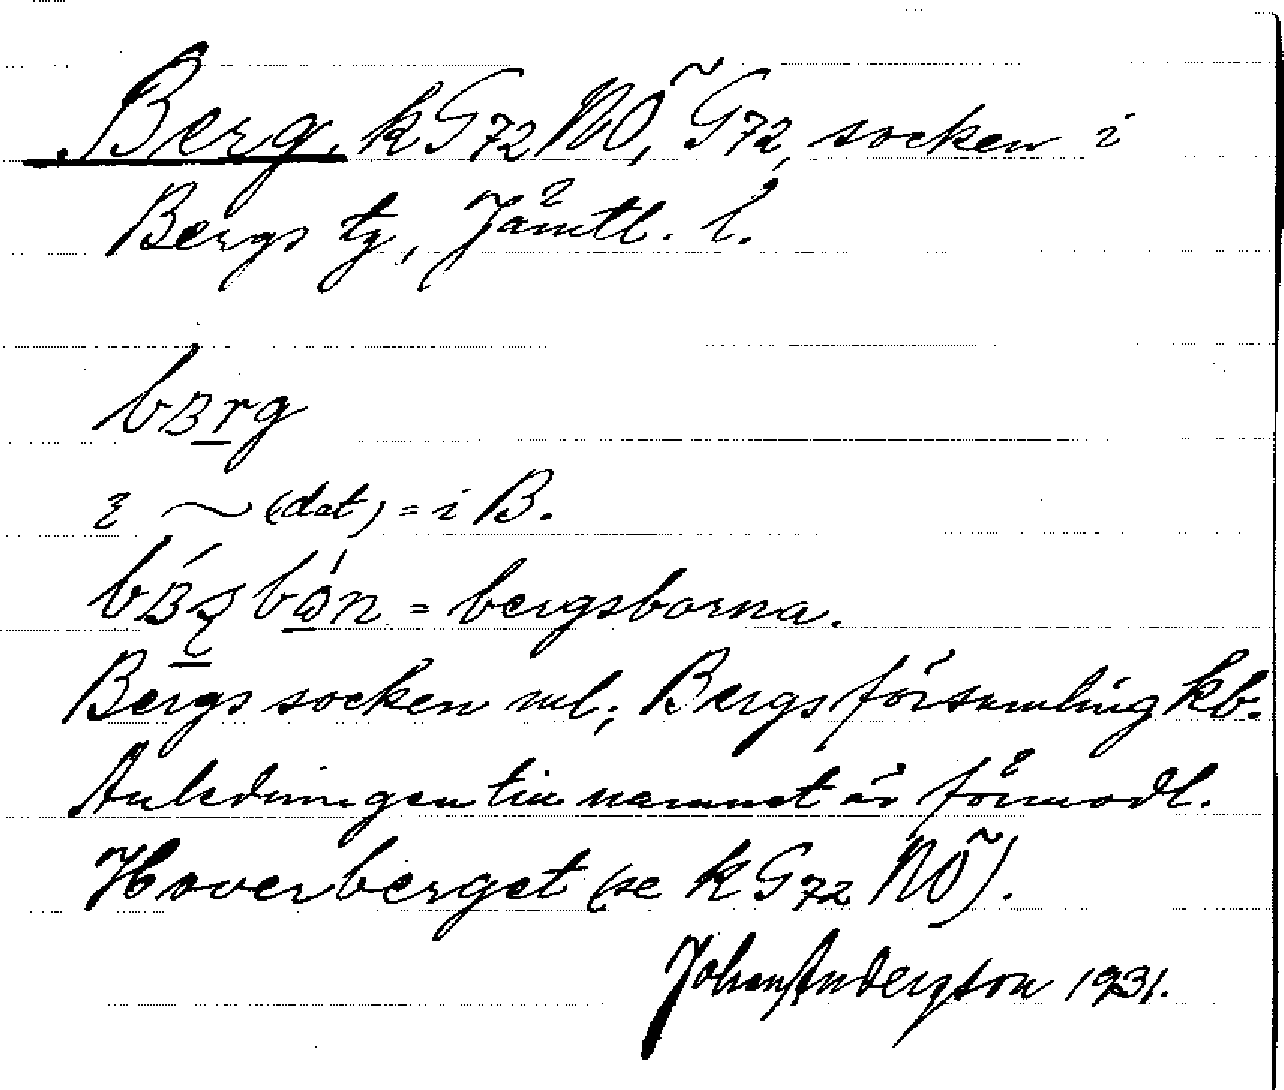 Berg, k G72 NÖ, G72, socken i
Bergs tg, Jämtl. l.
bɛrg
i ~ (dat) = i B.
= bergsborna.
Bergs socken ml; Bergs församling kb.
Anledningen till namnet är förmodl.
Hoverberget (se k G72 NÖ).
Johan Andersson 1931.